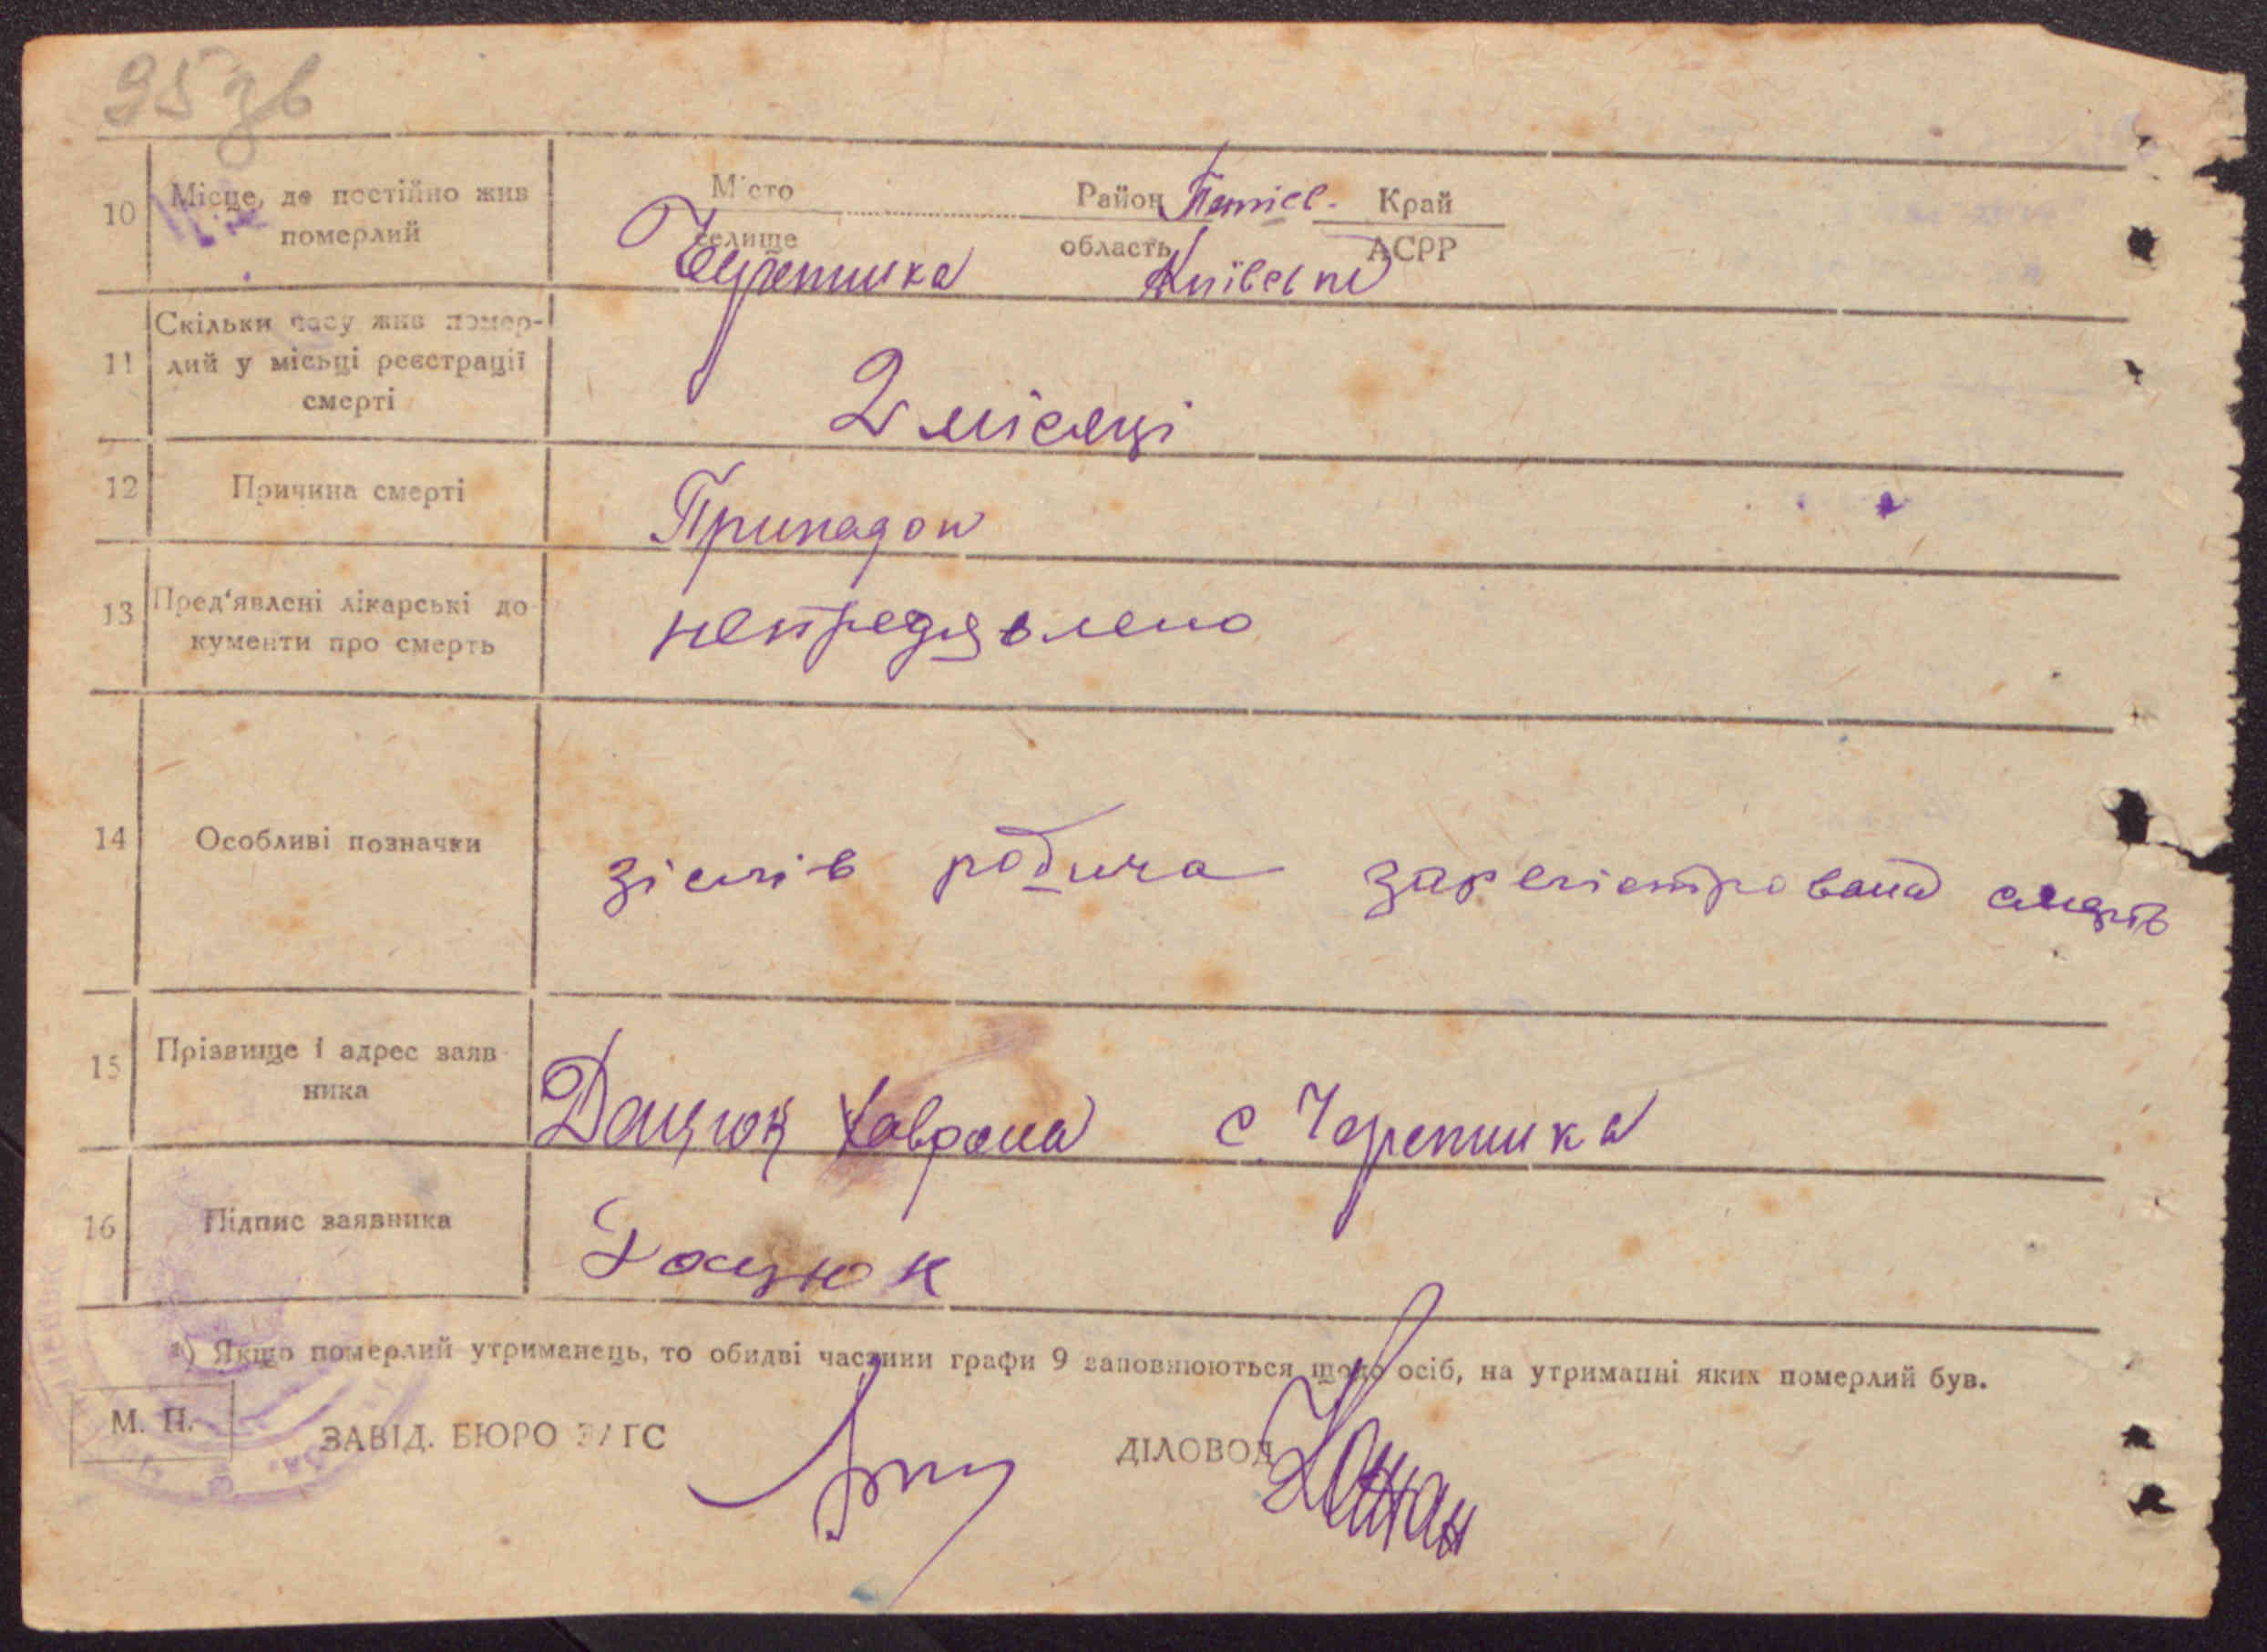 95 зв
10 Місце, де постійно жив померлий
М'сто Район Тетіев. Край
селище область АСРР
Черепинка Київськ
11 Скільки часу жив помер-
лий у місьці реєстрації
смерті
2 місяці
12 Причина смерті
Припадок
13 Пред'явлені лікарські до
кументи про смерть
непредявлено
14 Особливі позначки
зі слів родича зарегістрована смерть
15 Прізвище і адрес заяв-
ника
Дацюк Хаврона с. Черепинка
16 Підпис заявника
Дацюк
*) Якщо померлий утриманець, то обидві частини графи 9 заповнюються щодо осіб, на утриманні яких померлий був.
М. П.
ЗАВІД. БЮРО ЗАГС ДІЛОВОД